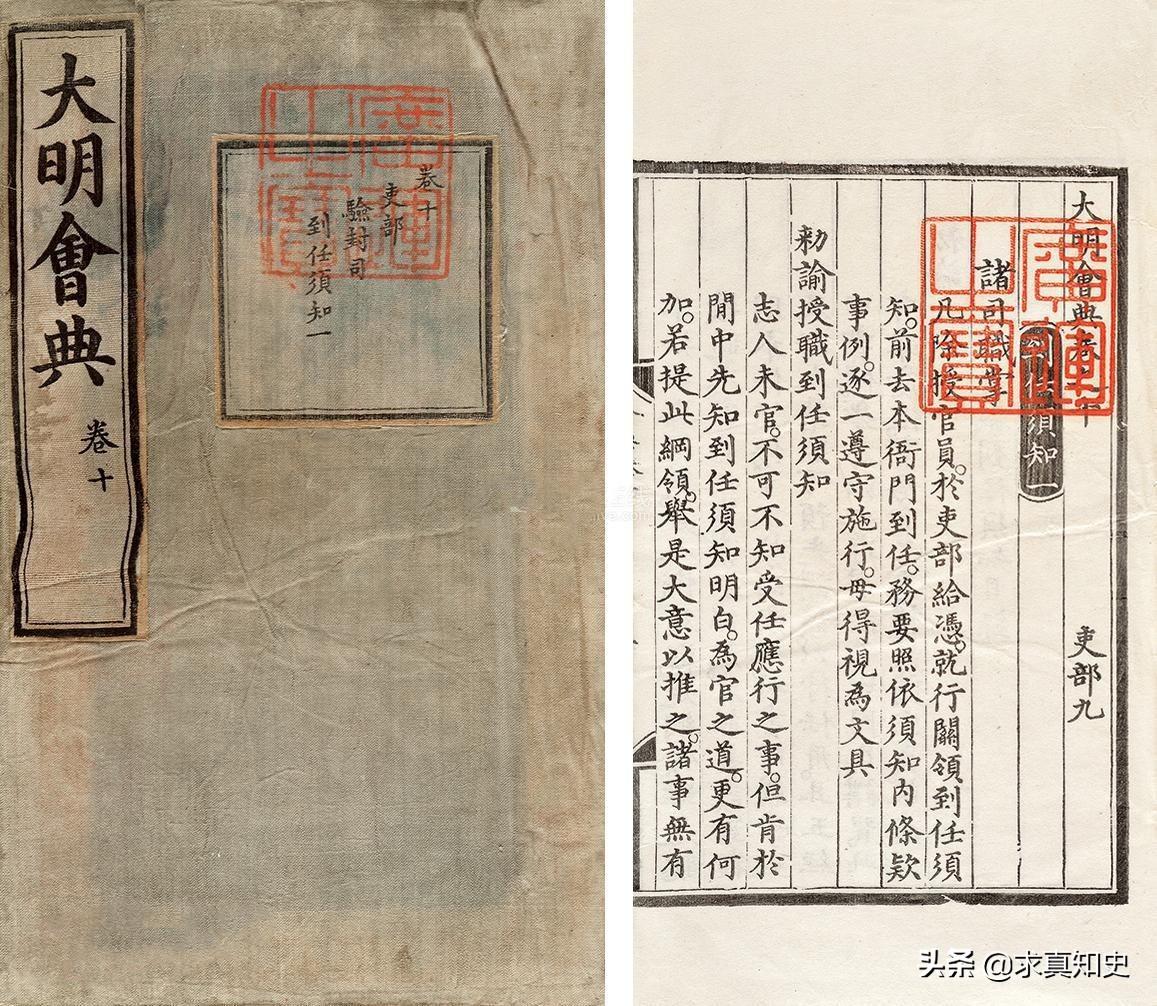 大明會典
卷十
卷十
吏部
驗封司
到任須知一
廣運
之寶
大明會典卷之十
吏部九
到任須知一
諸司職掌
凡除授官員。於吏部給憑。就行關領到任須
知。前去本衙門到任。務要照依須知內條款
事例。逐一遵守施行。毋得視為文具
勑諭授職到任須知
志人未官。不可不知受任應行之事。但肯於
閒中先知到任須知明白。為官之道。更有何
加。若提此綱領。舉是大意以推之。諸事無有
廣運
之寶
头条 @求真知史